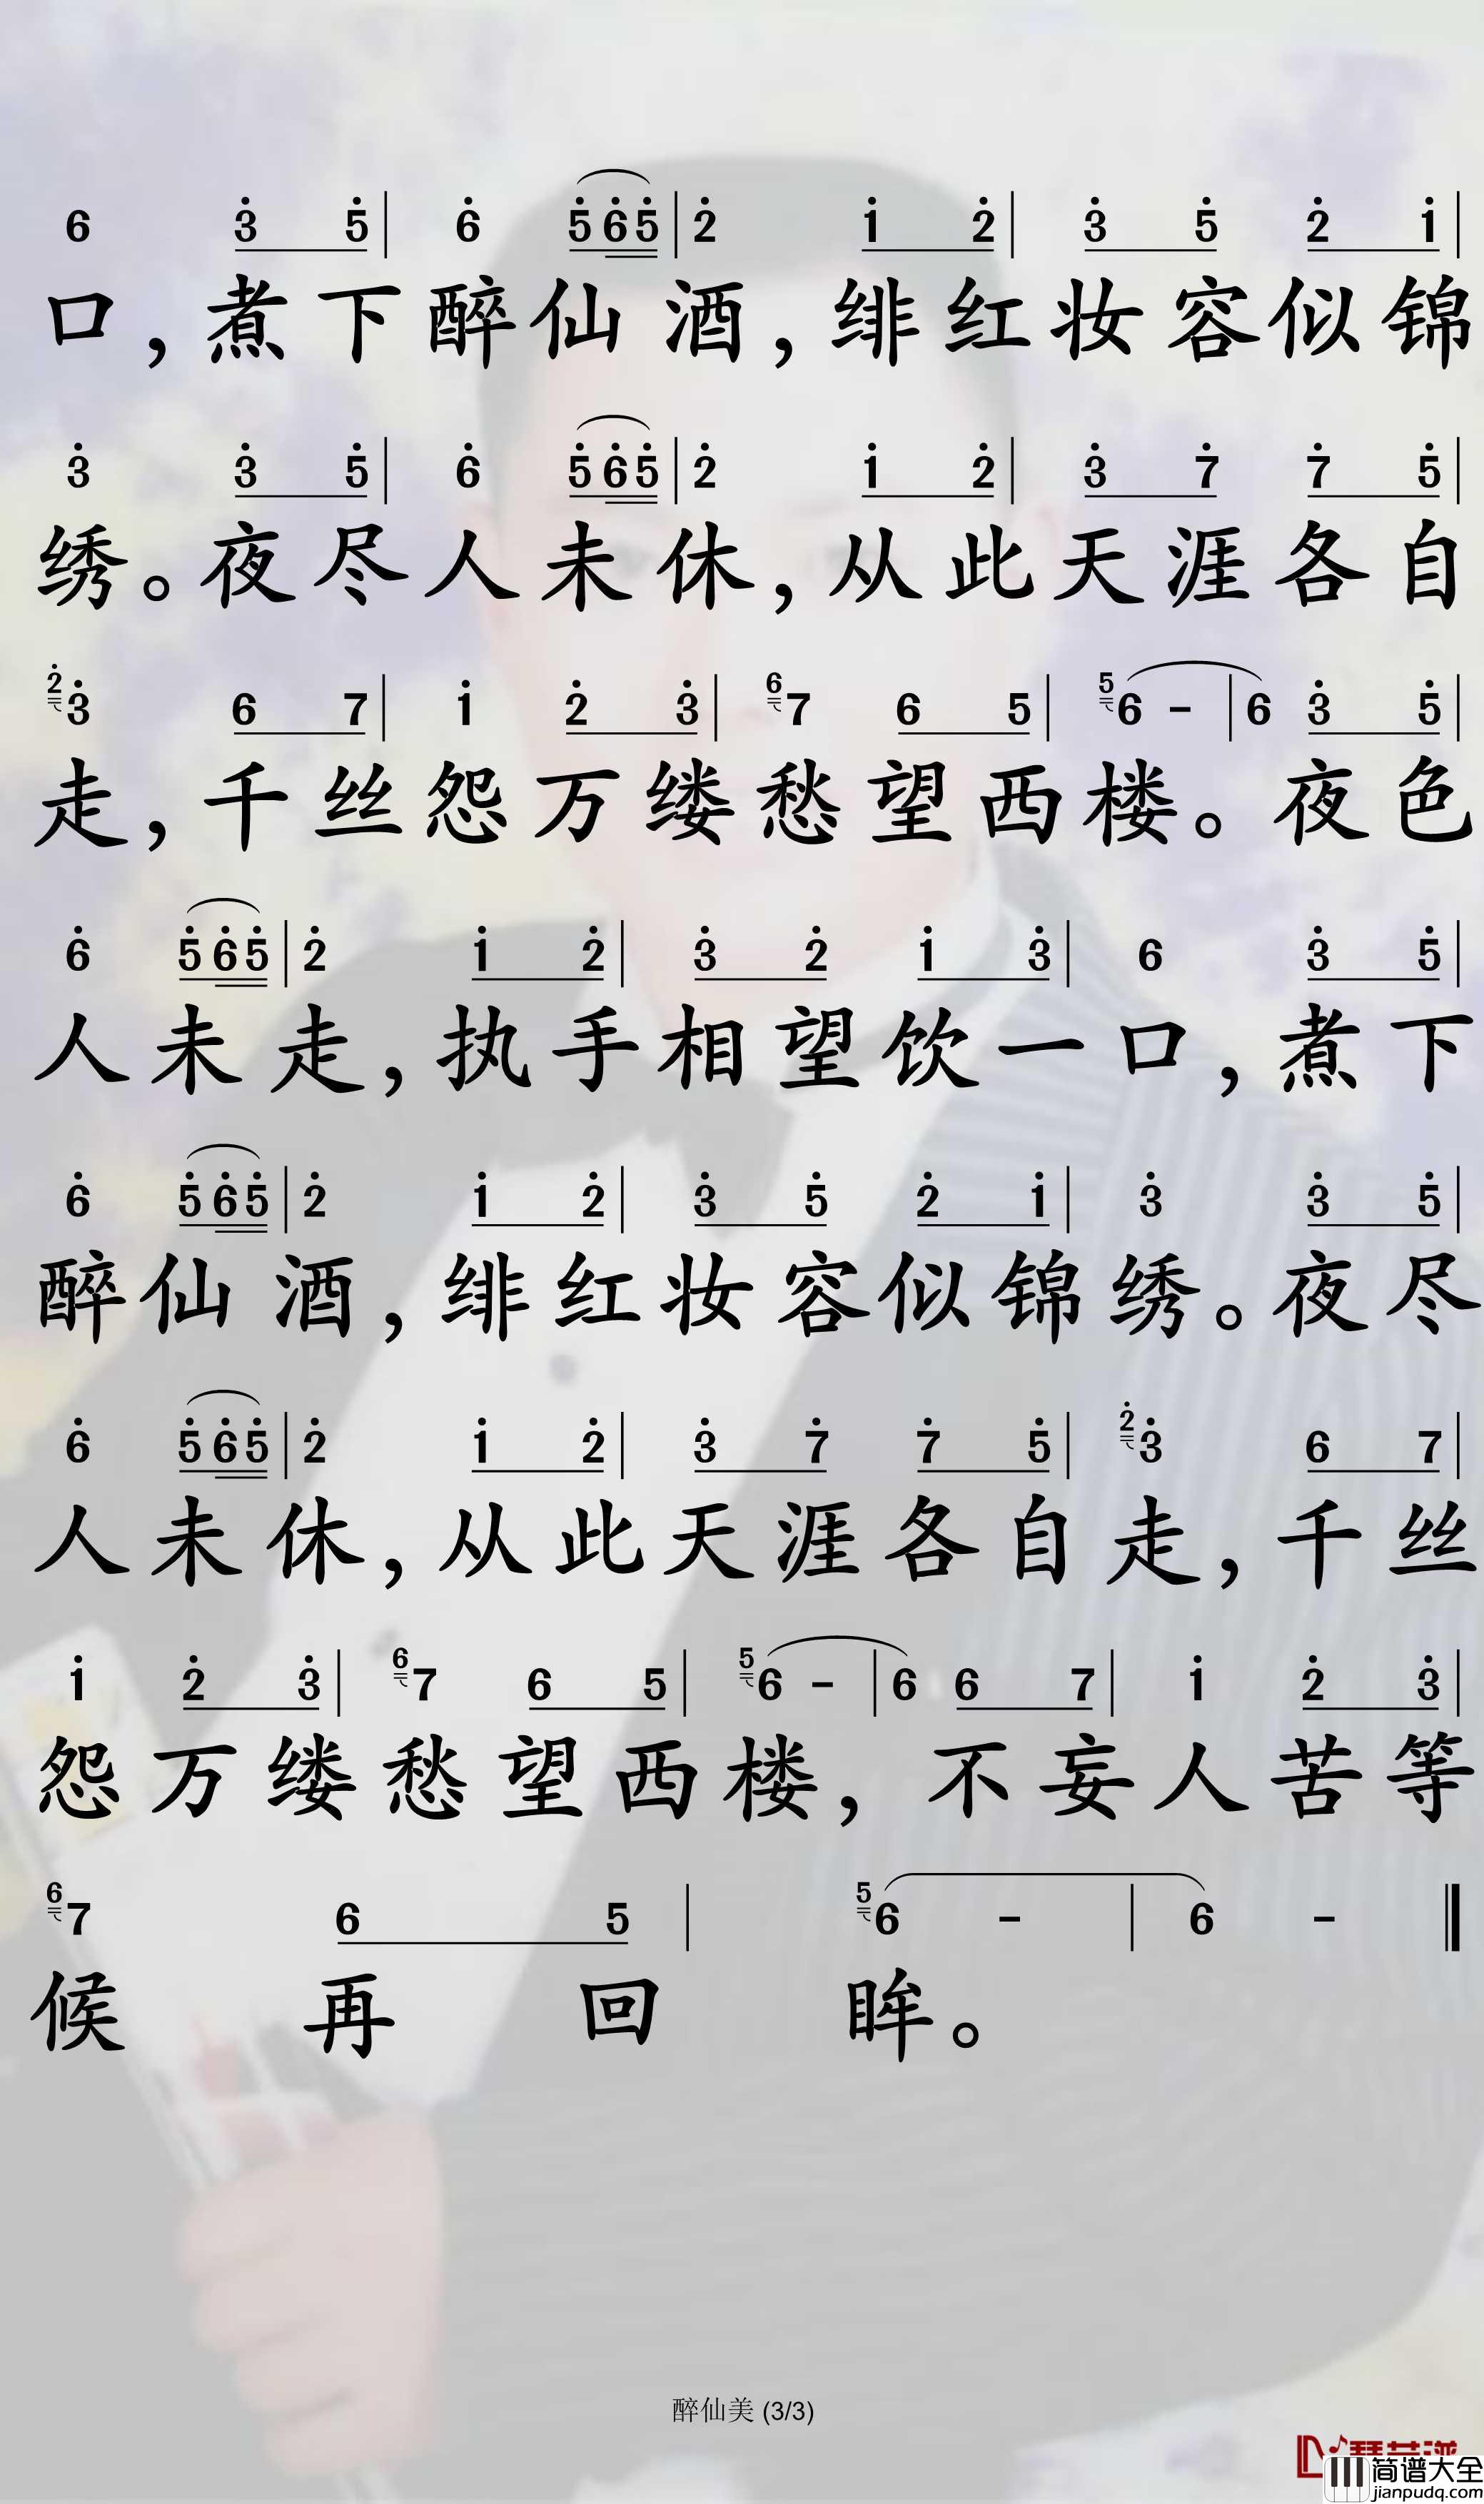 6 3 5 | 6 5 6 5 | 2 1 2 | 3 5 2 1 |
口，煮下醉仙酒，绯红妆容似锦
3 3 5 | 6 5 6 5 | 2 1 2 | 3 7 7 5 |
绣。夜尽人未休，从此天涯各自
2 3 6 7 | 1 2 3 | 6 7 6 5 | 5 6 - | 6 3 5 |
走，千丝怨万缕愁望西楼。夜色
6 5 6 5 | 2 1 2 | 3 2 1 3 | 6 3 5 |
人未走，执手相望饮一口，煮下
6 5 6 5 | 2 1 2 | 3 5 2 1 | 3 3 5 |
醉仙酒，绯红妆容似锦绣。夜尽
6 5 6 5 | 2 1 2 | 3 7 7 5 | 2 3 6 7 |
人未休，从此天涯各自走，千丝
1 2 3 | 6 7 6 5 | 5 6 - | 6 6 7 | 1 2 3 |
怨万缕愁望西楼，不妄人苦等
6 7 6 5 | 5 6 - | 6 - ‖
候再回眸。
醉仙美 (3/3)
简谱大全
jianpudq.com